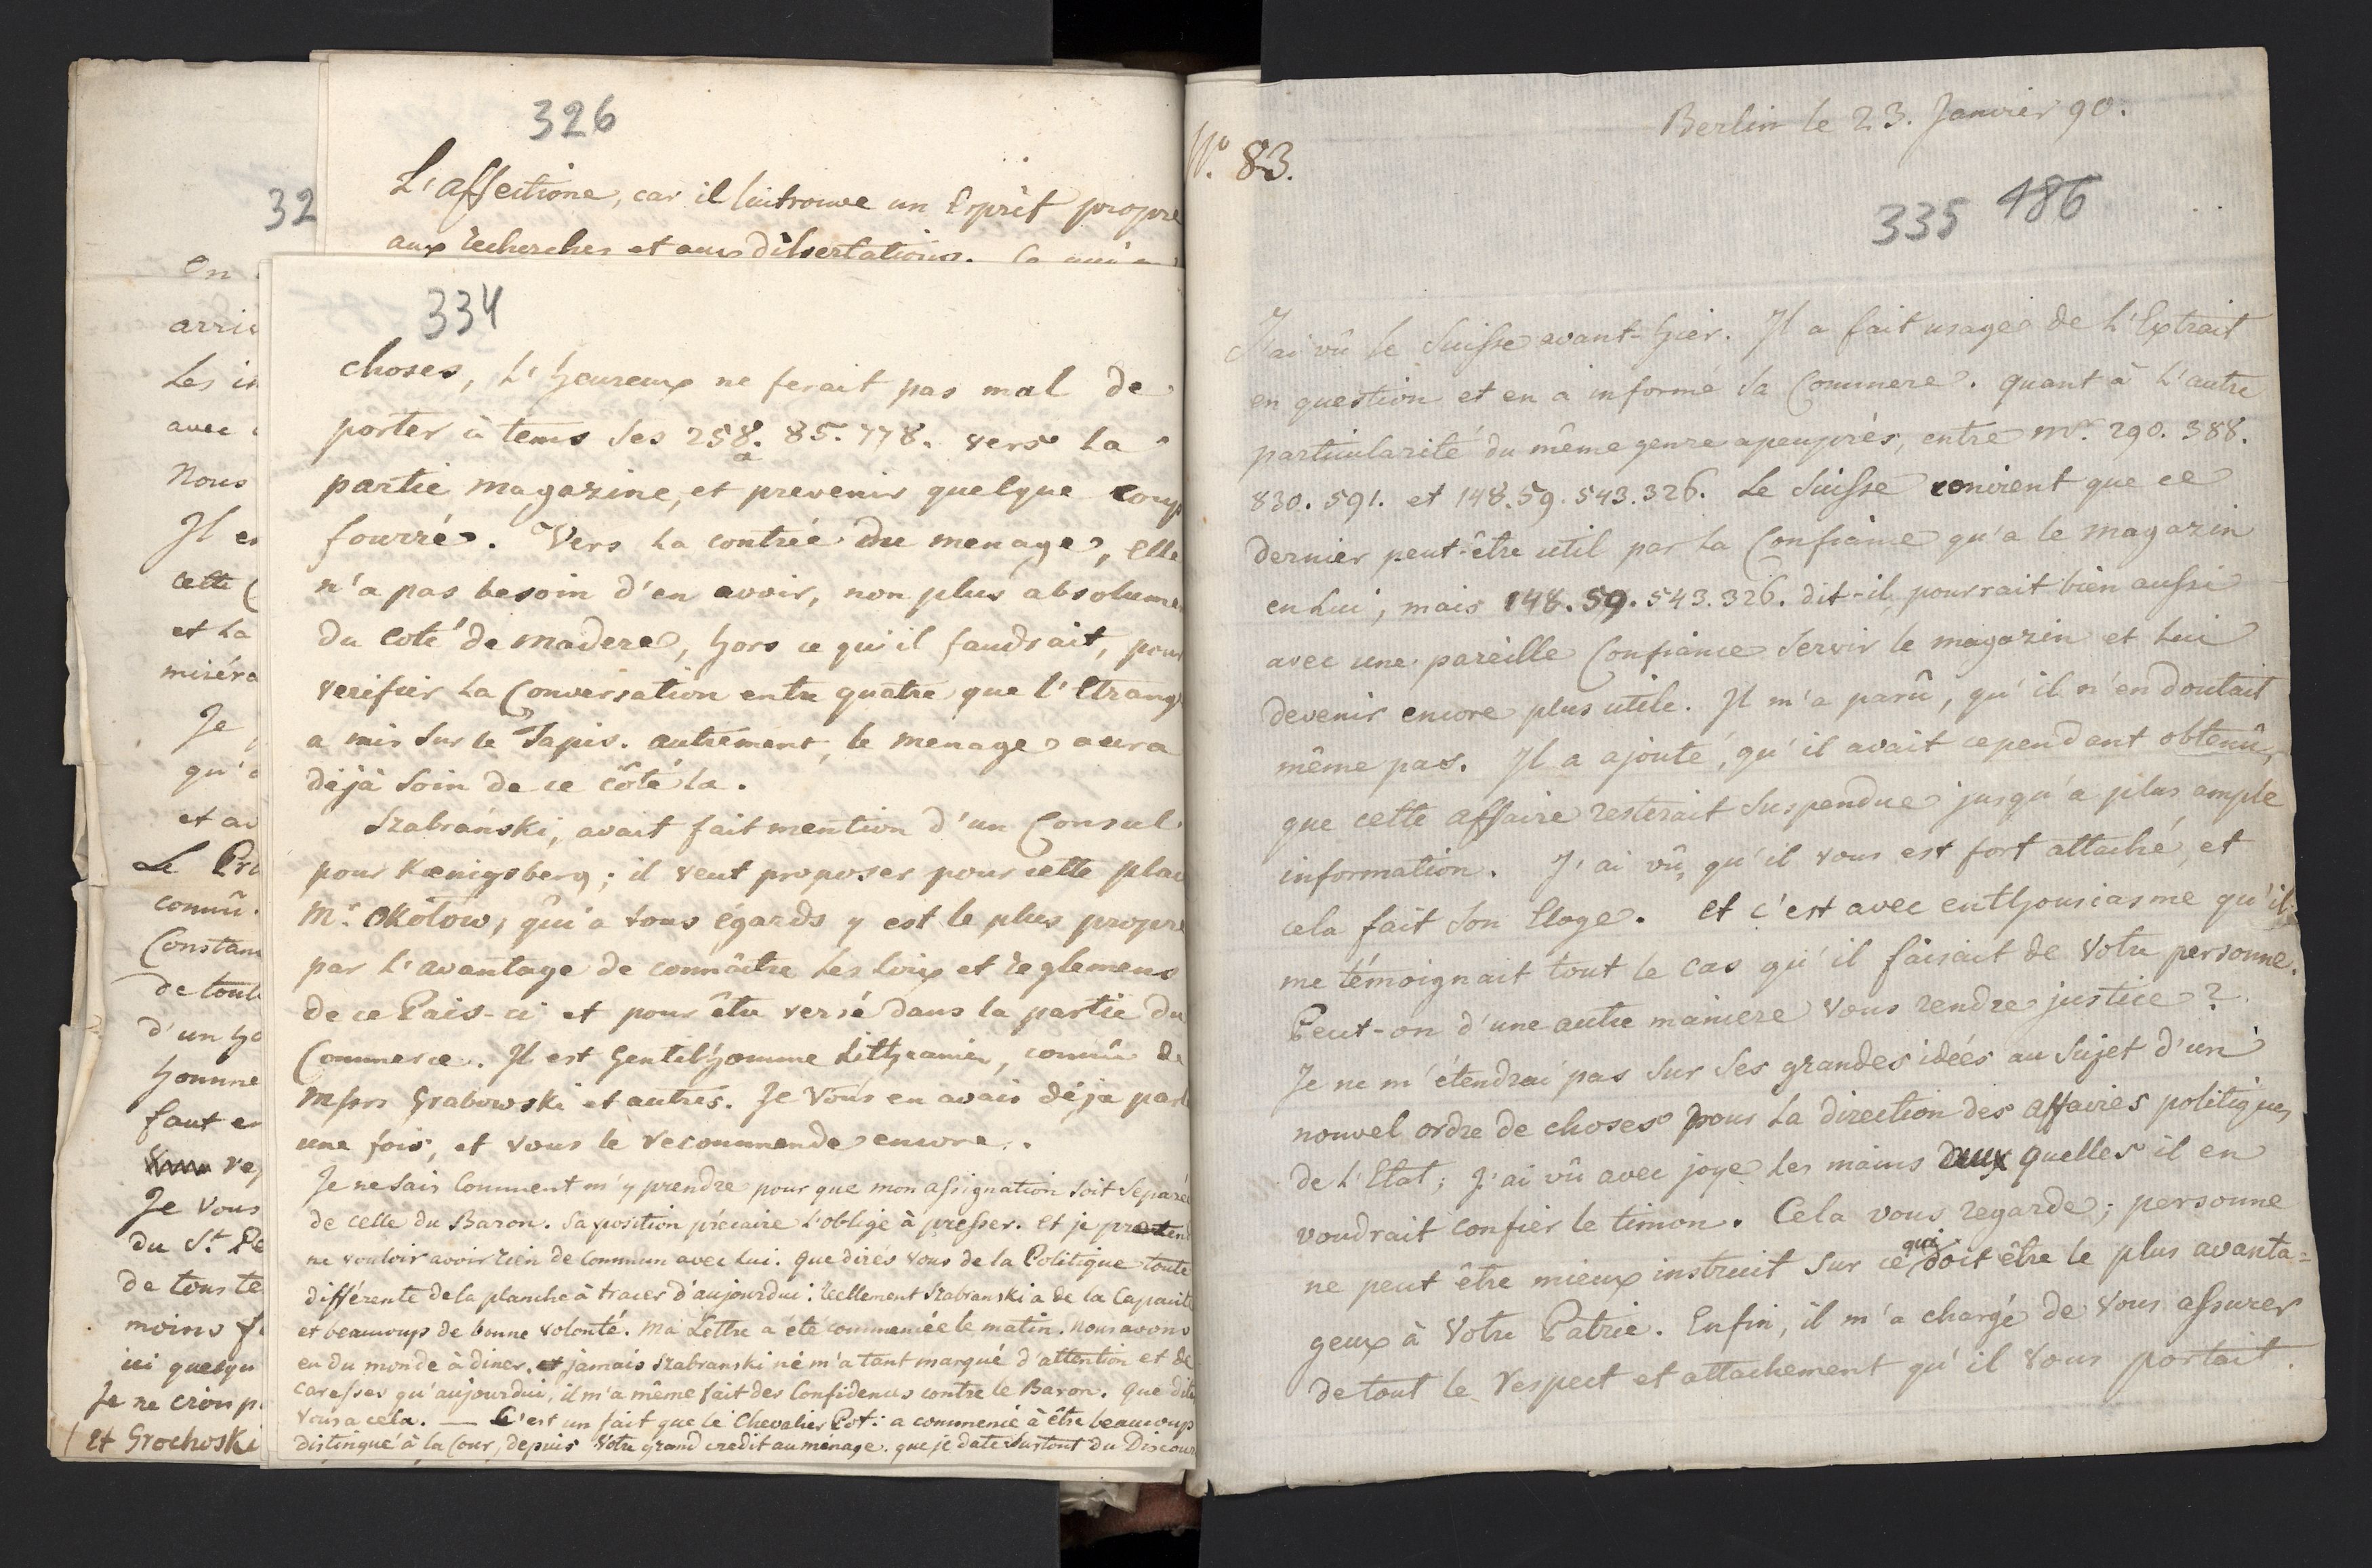 32
On
arri
Les in
avec
Nous
Il e
cette
et La
miséra
Je
qu'
et av
Le Pri
connû.
Constam
de tout
d'un ho
homme
faut en
rep
Je vous
du St. Pe
de tous te
moins f
ici quelqu
Je ne crois p
et Grochoski
326
L'affectione, car il lui trouve un Esprit propre
aux recherches et aux dissertations.
334
choses, L'heureux ne ferait pas mal de
porter à tems ses 258. 85. 778. vers la
a
partie magazine, et prevenir quelque coup
fourré. Vers la contrée du menage, Elle
n'a pas besoin d'en avoir, non plus absolumen
du coté de madere, hors ce qu'il faudrait, pour
verifier la Conversation entre quatre que l'Etrang
a mis sur le Tapis. autrement, le menage aura
déjà soin de ce côté la.
Szabrański, avait fait mention d'un Consul
pour Kœnigsberg; il veut proposer pour cette plac
Mr. Okołow, qui à tous égards y est le plus propre
par l'avantage de connâitre les loix et reglemens
de ce Pais-ci et pour être versé dans la partie du
Commerce. Il est Gentilhomme Lithuanien, connû de
Messrs Grabowski et autres. Je Vous en avais déja parl
une fois, et vous le recommende encore.
Je ne sais Comment m'y prendre pour que mon assignation soit separée
de celle du Baron. Sa position précaire l'oblige à presser. et je pretend
ne vouloir avoir rien de Commun avec lui. que dirés vous de la Politique toute
différente de la planche à tracer d'aujourdui. reellement Szabranski a de la Capacité
et beaucoup de bonne volonté. Ma Lettre a été commencée le matin. nous avons
eu du monde à diner. et jamais Szabranski ne m'a tant marqué d'attention et de
caresses qu'aujourdui, il m'a même fait des Confidences contre le Baron. que dite
vous a cela. — C'est un fait que le Chevalier Pot: a commencé à être beaucoup
distingué à la Cour, depuis Votre grand credit au ménage. que je date surtout du Discour
Berlin le 23. Janvier 90.
No. 83.
335 486
J'ai vû le Suisse avant-hier. Il a fait usage de L'Extrait
en question et en a informé sa Commere. quant à L'autre
particularité du même genre apeuprés, entre Mr. 290. 388.
830. 591. et 148. 59. 543. 326. Le Suisse convient que ce
dernier peut-être util par la Confiance qu'a le magazin
en Lui, mais 148. 59. 543. 326. dit-il, pourrait bien aussi
avec une pareille Confiance servir le magazin et Lui
devenir encore plus utile. Il m'a parû, qu'il n'en doutait
même pas. Il a ajouté, qu'il avait cependant obtenû,
que cette affaire resterait suspendue jusqu'à plus ample
information. J'ai vû, qu'il vous est fort attaché, et
cela fait son Eloge. et c'est avec enthousiasme qu'il
me témoignait tout le cas qu'il faisait de Votre personne.
Peut-on d'une autre maniere Vous rendre justice?
Je ne m'étendrai pas sur ses grandes idées au sujet d'un
nouvel ordre de choses pour la direction des affaires politiques
de L'Etat; J'ai vû avec joye les mains auxquelles il en
voudrait confier le timon. Cela vous regarde; personne
ne peut être mieux instruit sur ce qui doit être le plus avanta=
geux à Votre Patrie. Enfin, il m'a chargé de Vous assurer
de tout le respect et attachement qu'il Vous portait.